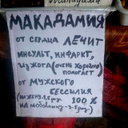 МАКАДАМИЯ
от сердца лЕЧит
инсульт, инфаркт,
изжога (очень хорошо
помогает)
от мужского
бессилия
100 %